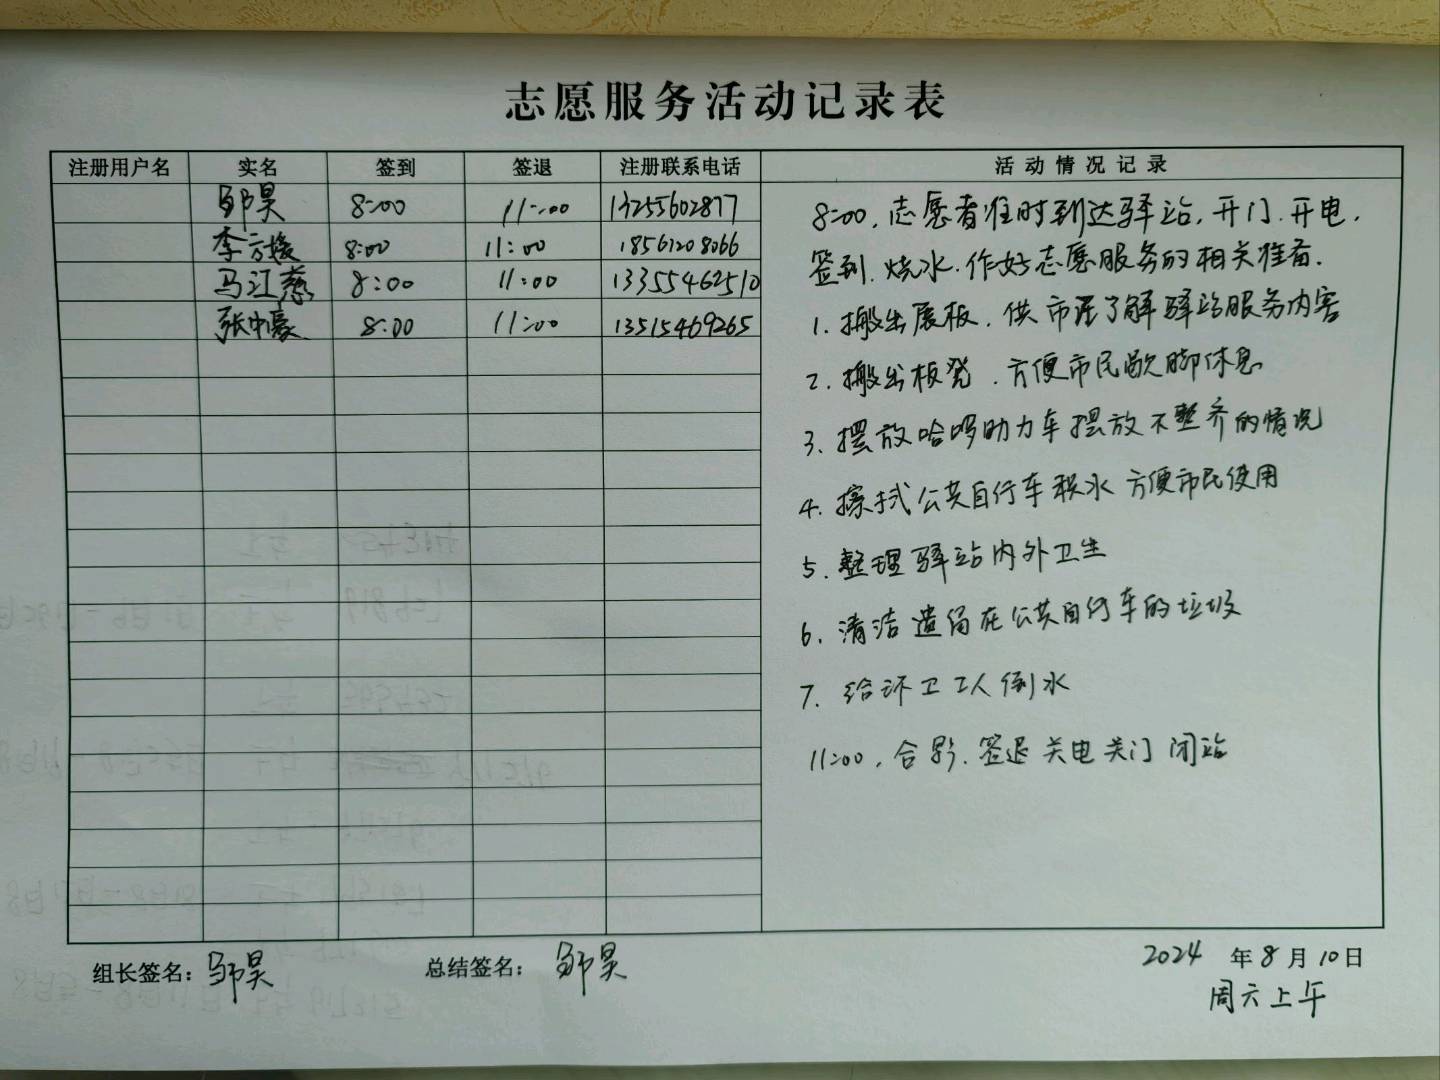 志愿服务活动记录表
注册用户名 实名 签到 签退 注册联系电话 活动情况记录
邹昊 8:00 11:00 13255602877
李方媛 8:00 11:00 18561208066
马江慈 8:00 11:00 13355462510
张中豪 8:00 11:00 13515469265
8:00，志愿者准时到达驿站，开门，开电，
签到，烧水，作好志愿服务的相关准备。
1. 搬出展板，供市民了解驿站服务内容
2. 搬出板凳，方便市民歇脚休息
3. 摆放哈啰助力车摆放不整齐的情况
4. 擦拭公共自行车积水 方便市民使用
5. 整理驿站内外卫生
6. 清洁遗留在公共自行车的垃圾
7. 给环卫工人倒水
11:00，合影，签退 关电 关门 闭站
组长签名：邹昊 总结签名：邹昊 2024 年 8 月 10 日
周六上午